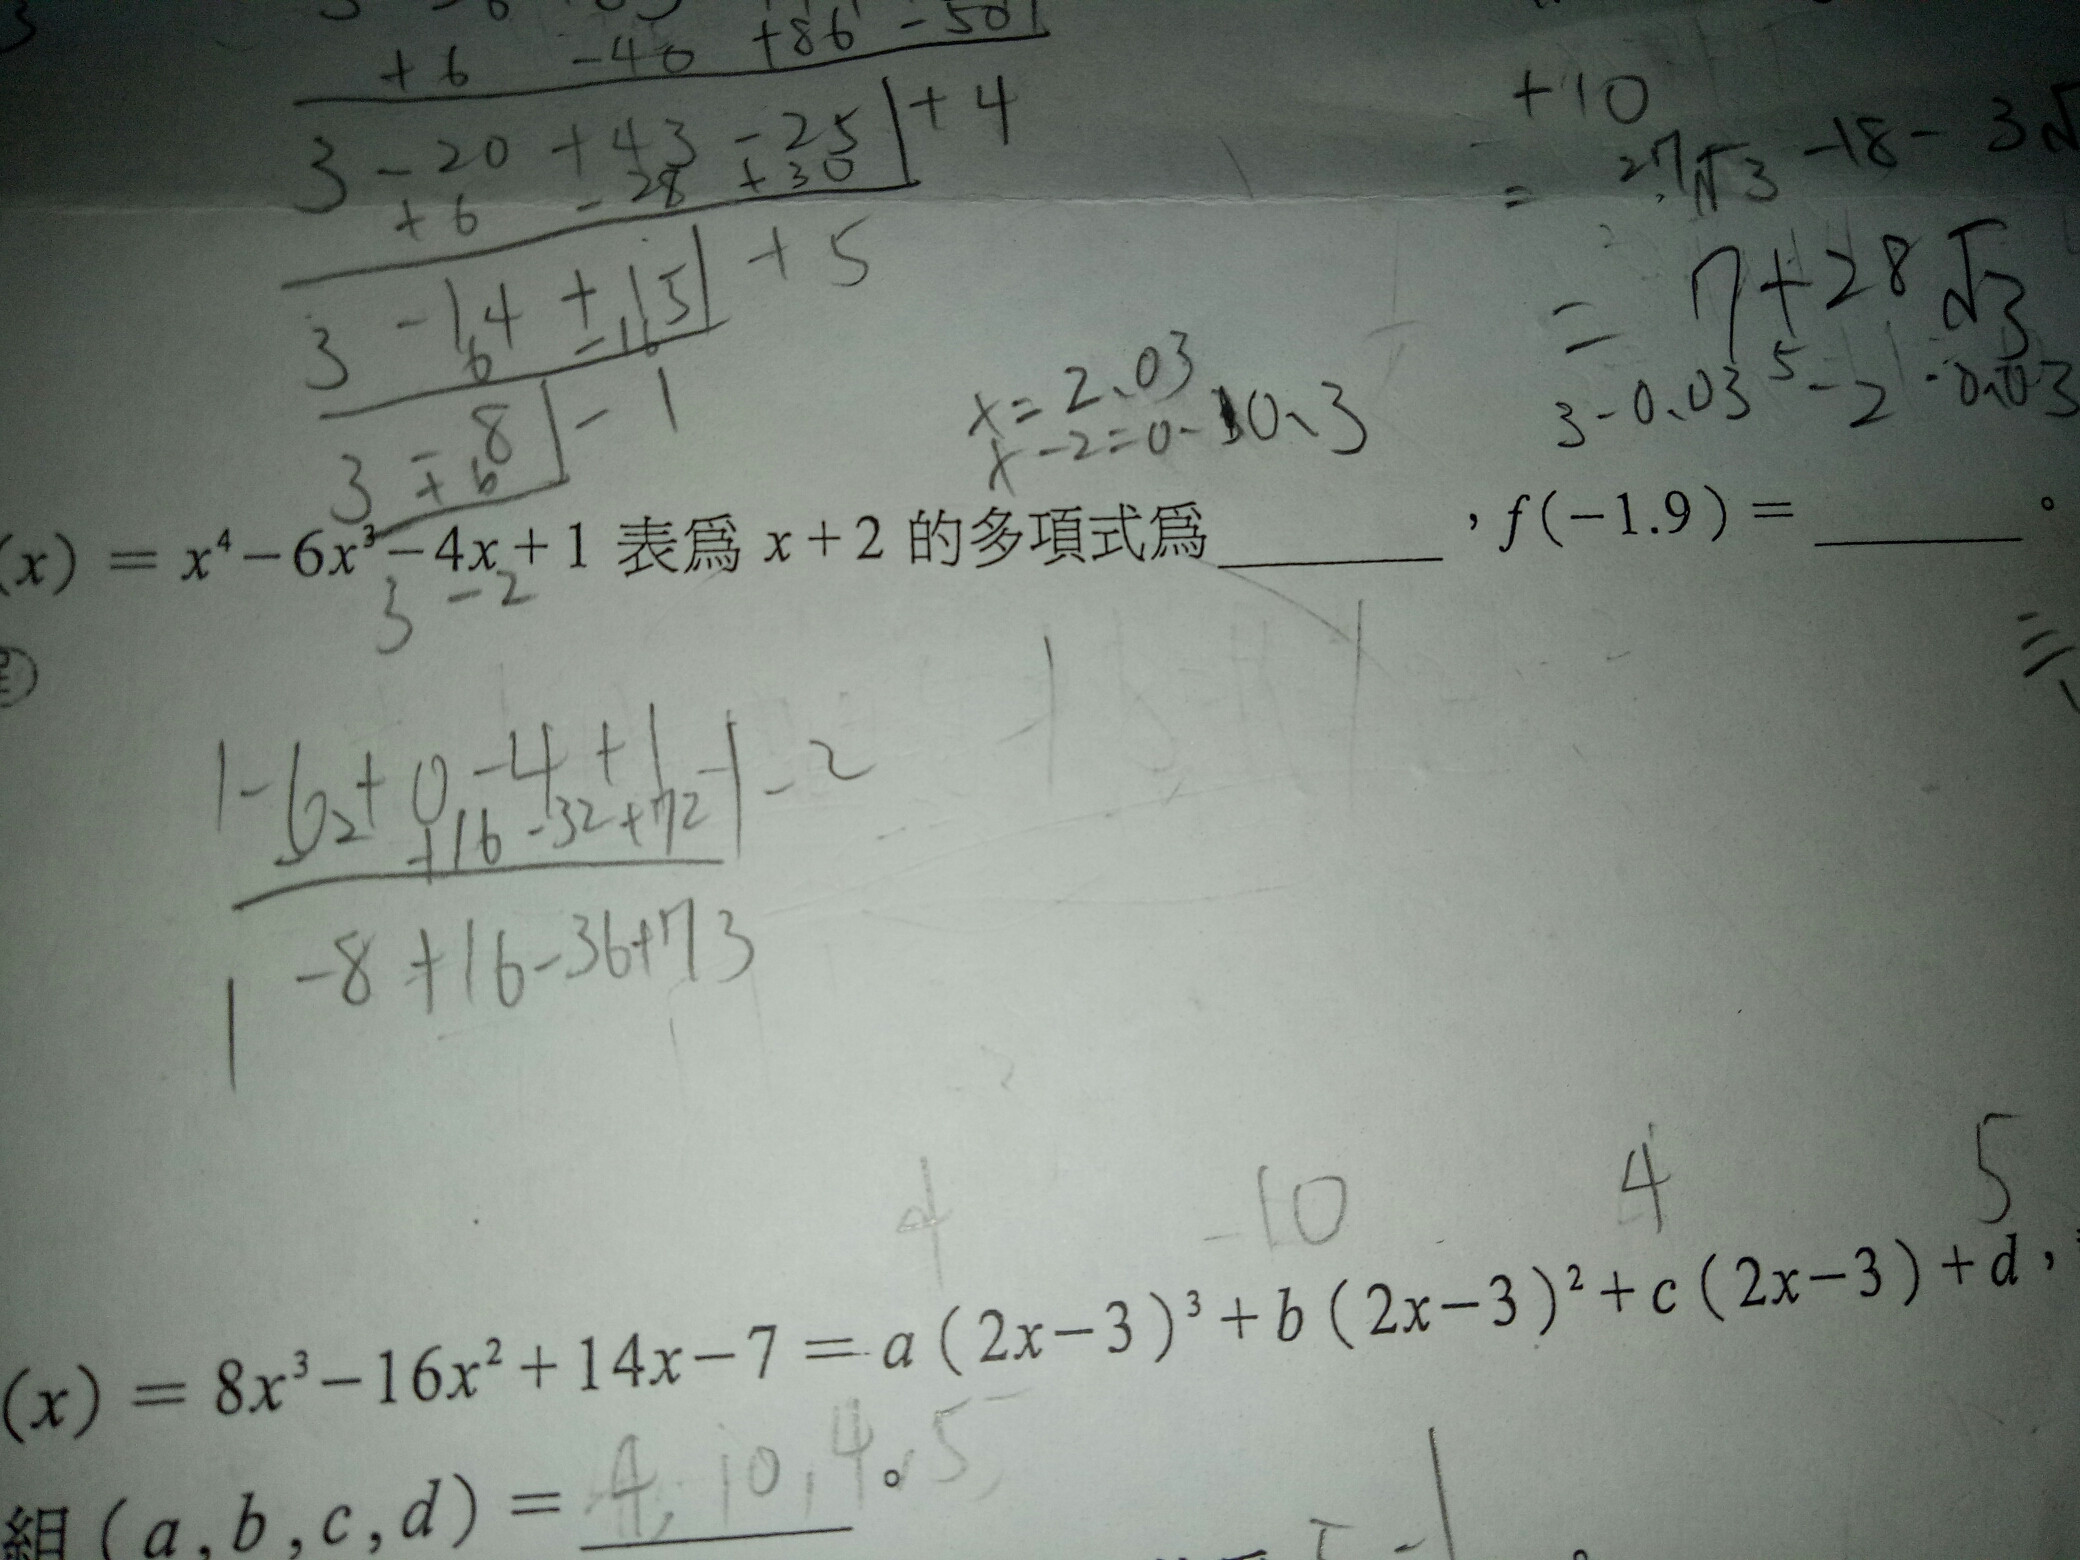 +6 -40 +86 -50
3 -20 +43 -25 +4
+6 -28 +30
3 -14 +15 +5
6 -16
3 -8 -1
+6
3 -2
+10
= 27√3 -18 - 3√
= 7+28√3
x=2.03
x-2=0-10.3
3-0.03⁵-2·0.03
(x) = x⁴-6x³-4x+1 表為 x+2 的多項式為 ,f(-1.9) = 。
1-6+0-4+1 -2
-2+16-32+72
1 -8+16-36+73
4 -10 4 5
(x) = 8x³-16x²+14x-7 = a(2x-3)³+b(2x-3)²+c(2x-3)+d,
組(a,b,c,d) = 4, 10, 4, 5 。